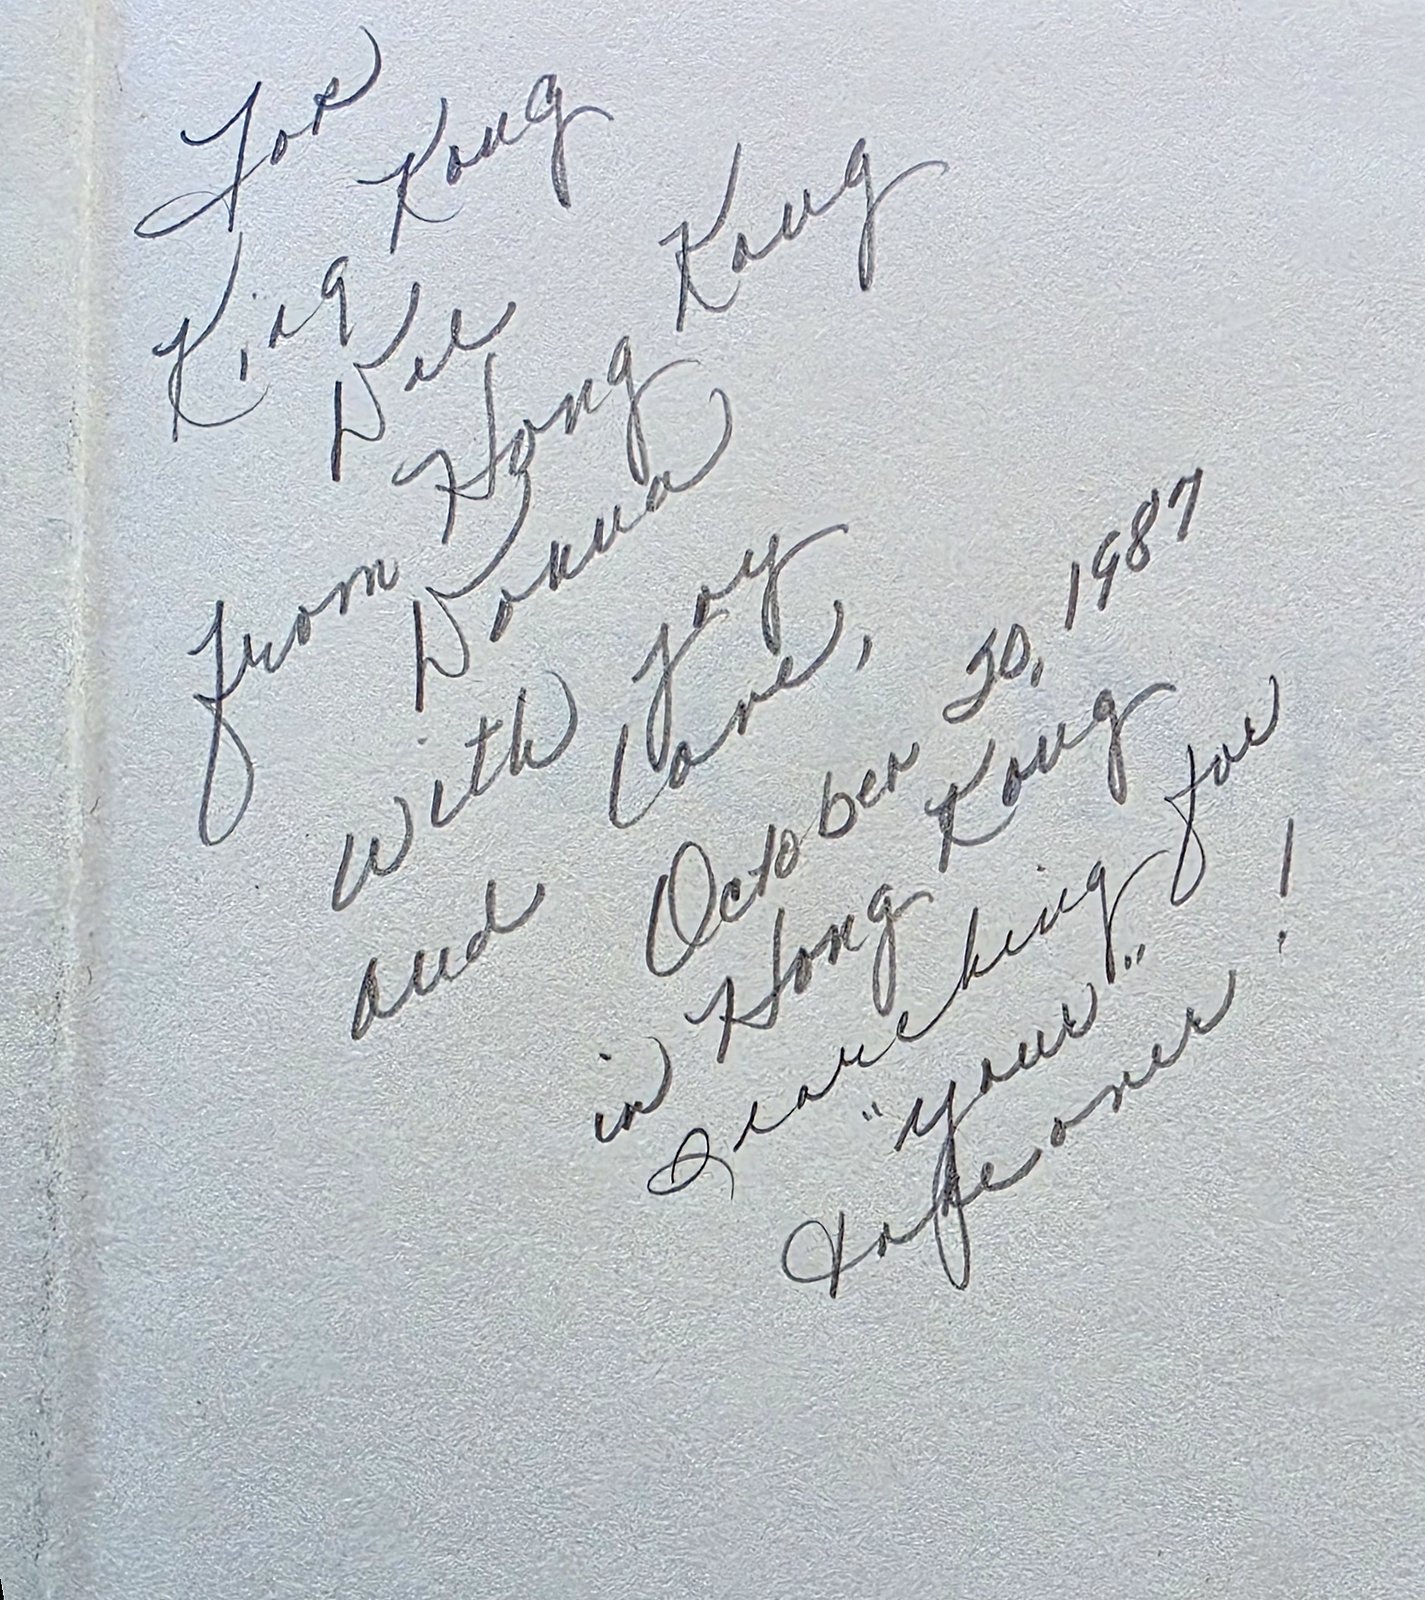 For
King Kong
Dee
from Hong Kong
Donna
with Joy
and Love,
October 20, 1987
in Hong Kong
Searching for
"your"
Tapeones!